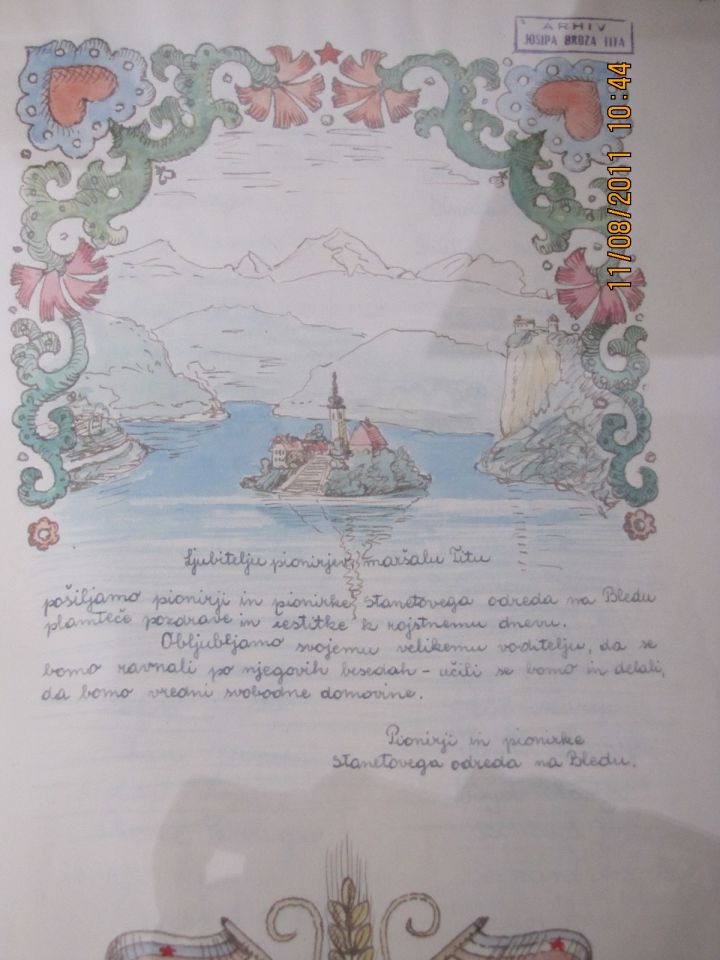 ARHIV
JOSIPA BROZA TITA
11/08/2011 10:44
Ljubitelju pionirjev, maršalu Titu
pošiljamo pionirji in pionirke Stanetovega odreda na Bledu
plamteče pozdrave in čestitke k rojstnemu dnevu.
Obljubljamo svojemu velikemu voditelju, da se
bomo ravnali po njegovih besedah - učili se bomo in delali,
da bomo vredni svobodne domovine.
Pionirji in pionirke
Stanetovega odreda na Bledu.